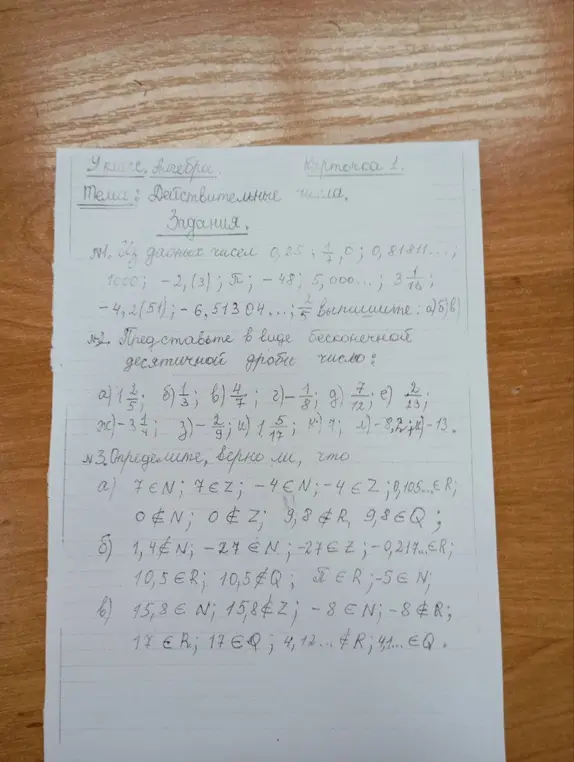 9 класс. Алгебра. Карточка 1.
Тема: Действительные числа.
Задания.
№1. Из данных чисел 0,25; 1/7; 0; 0,81811...;
1000; -2,(3); π; -48; 5,000...; 3 1/10;
-4,2(51); -6,51304...; 2/5 выпишите: а) б) в)
№2. Представьте в виде бесконечной
десятичной дроби число:
а) 1 2/5; б) 1/3; в) 4/7; г) -1/8; д) 7/12; е) 2/23;
ж) -3 1/4; з) -2/9; и) 1 5/17; к) 7; л) -8,2; м) -13.
№3. Определите, верно ли, что
а) 7∈N; 7∈Z; -4∈N; -4∈Z; 0,105...∈R;
0∉N; 0∉Z; 9,8∉R, 9,8∈Q;
б) 1,4∉N; -27∈N; -27∈Z; -0,217...∈R;
10,5∈R; 10,5∉Q; π∈R; -5∈N;
в) 15,8∈N; 15,8∉Z; -8∈N; -8∉R;
17∈R; 17∈Q; 4,12...∉R; 4,1...∈Q.